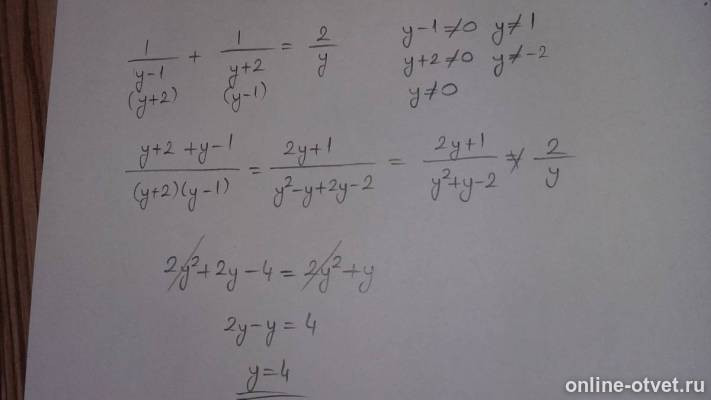 1/(y-1) + 1/(y+2) = 2/y    y-1≠0  y≠1
(y+2)  (y-1)    y+2≠0  y≠-2
y≠0
(y+2+y-1)/((y+2)(y-1)) = (2y+1)/(y²-y+2y-2) = (2y+1)/(y²+y-2) = 2/y
2y²+2y-4=2y²+y
2y-y=4
y=4
online-otvet.ru